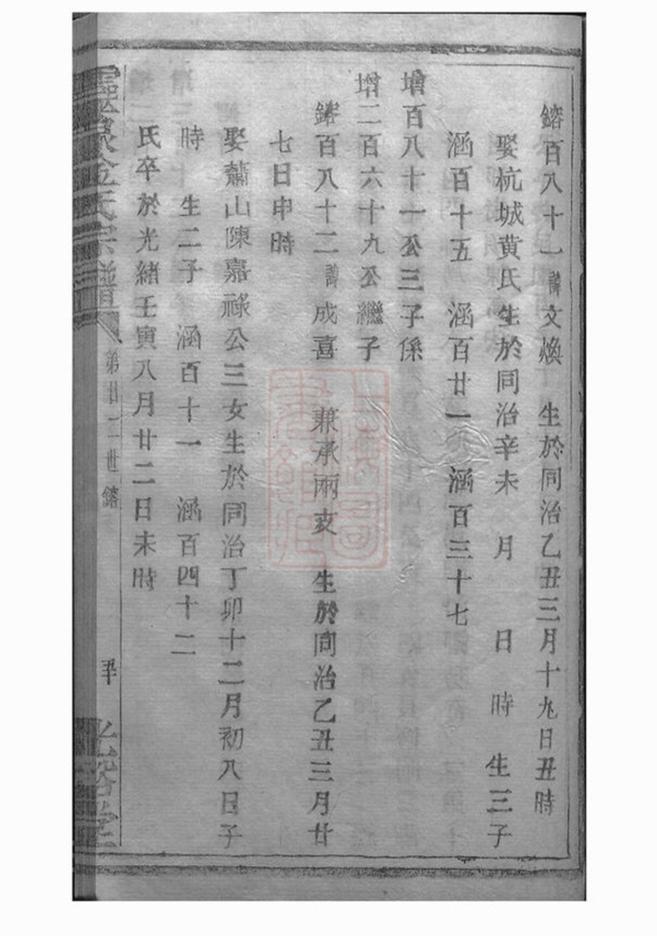 鎔百八十一諱文煥 生於同治乙丑三月十九日丑時
娶杭城黃氏生於同治辛未 月 日 時 生三子
涵百十五 涵百廿一 涵百三十七
增百八十一公三子係
增二百六十九公繼子
鎔百八十二諱成喜 兼承兩支 生於同治乙丑三月廿
七日申時
娶蕭山陳嘉祿公三女生於同治丁卯十二月初八日子
時 生二子 涵百十一 涵百四十二
氏卒於光緒壬寅八月廿二日未時
金氏宗譜
第廿二世鎔